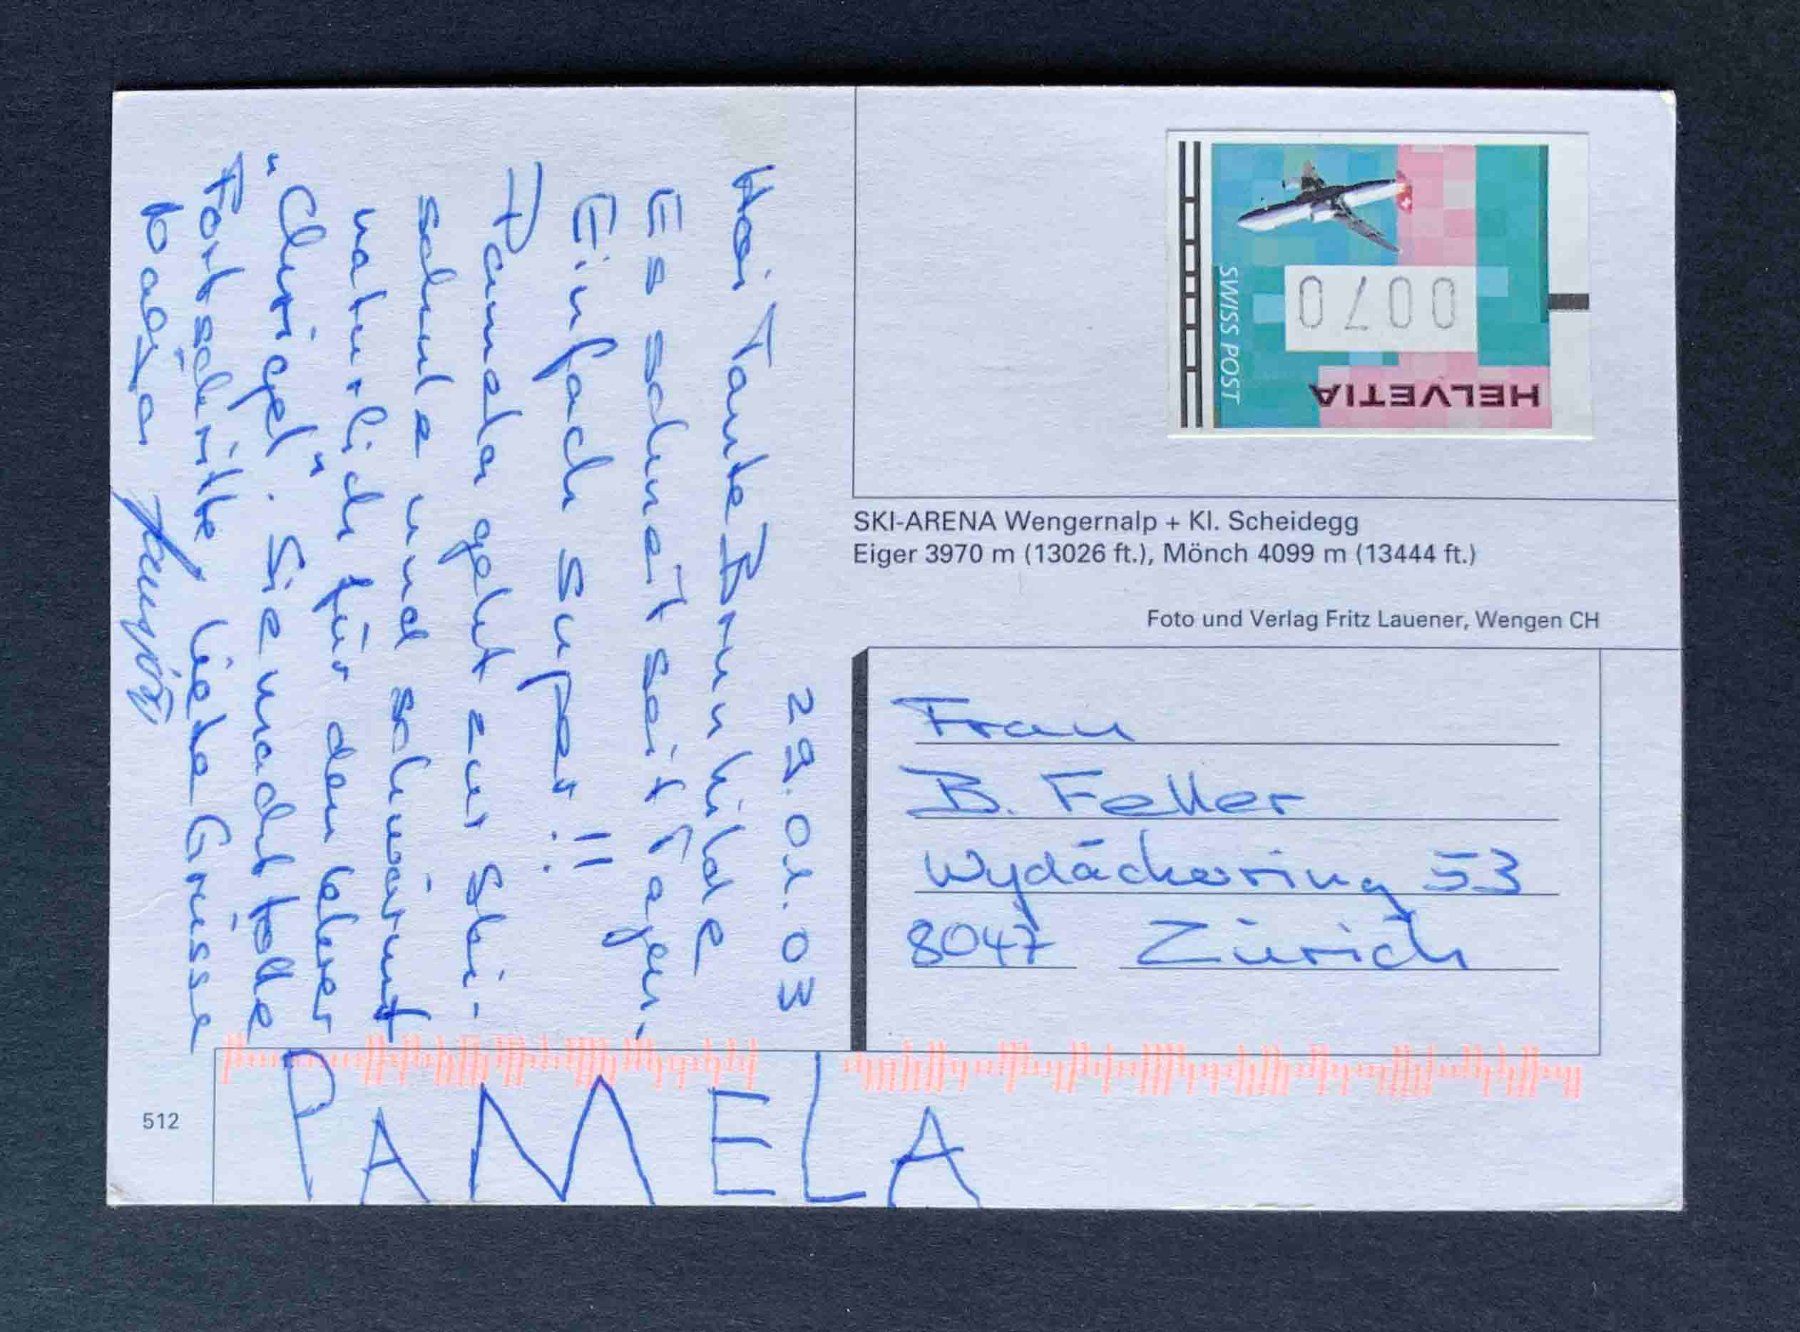 29.01.03
Hoi Tante Brunhilde
Es schneit seit Tagen.
Einfach super!!
Pamela geht zur Ski-
schule und schwärmt
natürlich für den Lehrer
"Chrigel". Sie macht tolle
Fortschritte. Liebe Grüsse
PAMELA
SWISS POST
0070
HELVETIA
SKI-ARENA Wengernalp + Kl. Scheidegg
Eiger 3970 m (13026 ft.), Mönch 4099 m (13444 ft.)
Foto und Verlag Fritz Lauener, Wengen CH
Frau
B. Feller
Wydäckerring 53
8047 Zürich
512